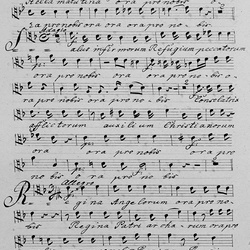 Stella matutina ora pro nobis
ra pro nobis ora ora pro nobis
Adagio
Salus infirmorum Refugium peccatorum
ora pro nobis ora ora pro nobis o
ra pro nobis ora pro nobis Consolatrix
afflictorum auxilium Christianorum
ora pro nobis ora ora pro no
bis ora pro nobis
Allegro
Regina Angelorum ora pro no
bis Regina Patriarcharum ora pro